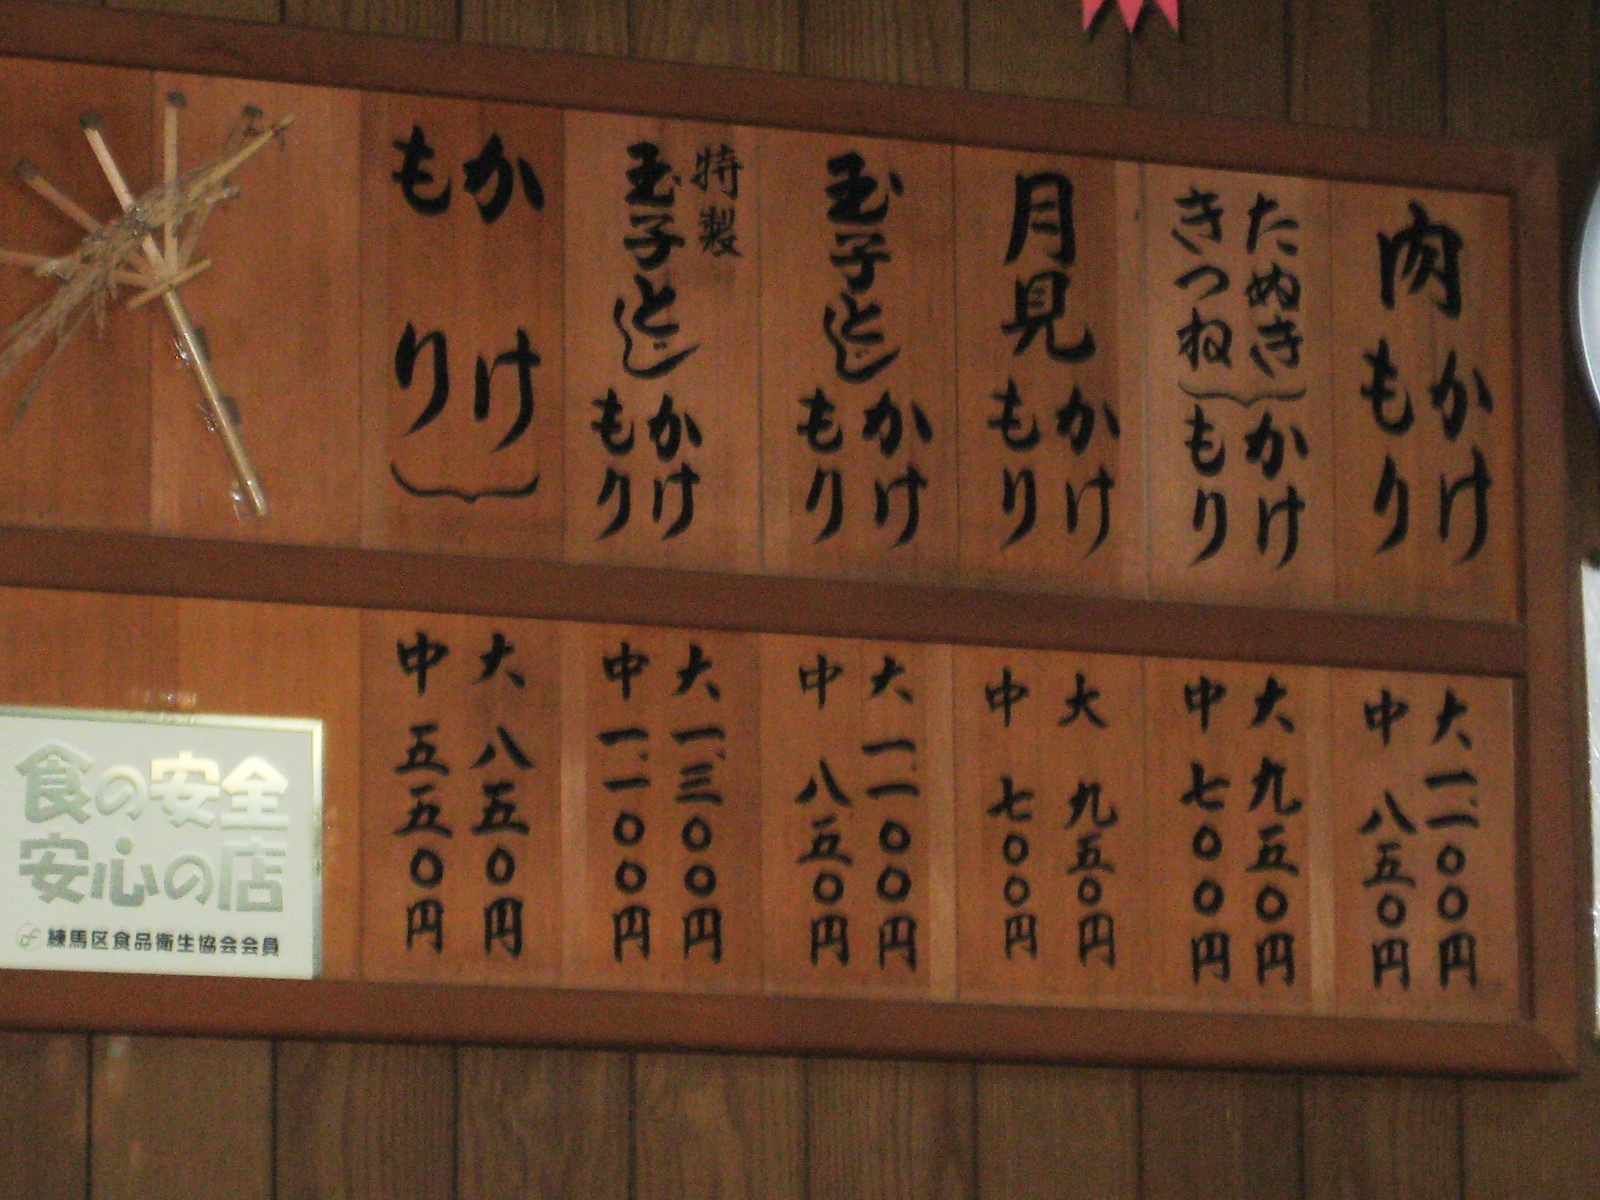 肉
かけ
もり
大一、一〇〇円
中 八五〇円
たぬき
きつね
かけ
もり
大 九五〇円
中 七〇〇円
月見
かけ
もり
大 九五〇円
中 七〇〇円
玉子とじ
かけ
もり
大 一、一〇〇円
中 八五〇円
特製
玉子とじ
かけ
もり
大 一、三〇〇円
中 一、一〇〇円
かけ
もり
大 八五〇円
中 五五〇円
食の安全
安心の店
練馬区食品衛生協会会員